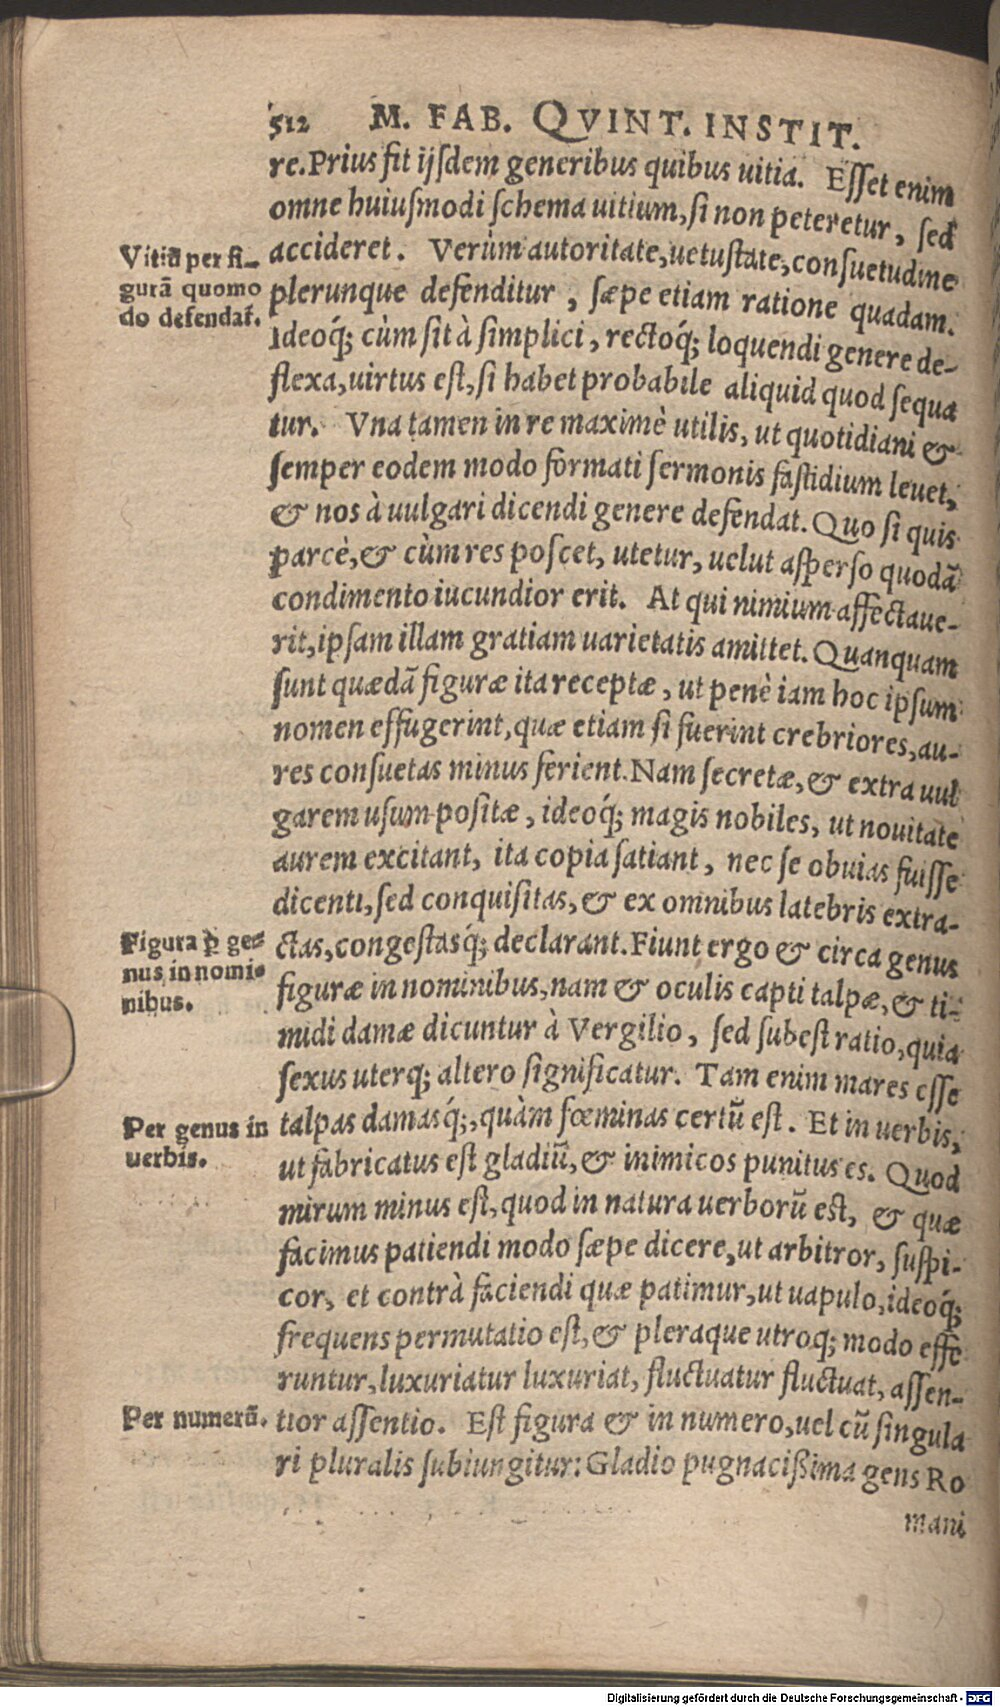 512 M. FAB. QVINT. INSTIT.
re. Prius fit ijsdem generibus quibus uitia. Esset enim
omne huiusmodi schema uitium, si non peteretur, sed
accideret. Verùm autoritate, uetustate, consuetudine
Vitiũ per fi-
gurã quomo
do defendat̃.
plerunque defenditur, sæpe etiam ratione quadam.
Ideoq́; cùm sit à simplici, rectoq́; loquendi genere de-
flexa, uirtus est, si habet probabile aliquid quod sequa
tur. Vna tamen in re maximè utilis, ut quotidiani &
semper eodem modo formati sermonis fastidium leuet,
& nos à uulgari dicendi genere defendat. Quo si quis
parcè, & cùm res poscet, utetur, uelut asperso quodã
condimento iucundior erit. At qui nimium affectaue-
rit, ipsam illam gratiam uarietatis amittet. Quanquam
sunt quædã figuræ ita receptæ, ut penè iam hoc ipsum
nomen effugerint, quæ etiam si fuerint crebriores, au-
res consuetas minus ferient. Nam secretæ, & extra uul
garem usum positæ, ideoq́; magis nobiles, ut nouitate
aurem excitant, ita copia satiant, nec se obuias fuisse
dicenti, sed conquisitas, & ex omnibus latebris extra-
ctas, congestasq́; declarant. Fiunt ergo & circa genus
Figura ꝑ ge-
nus in nomi-
nibus.
figuræ in nominibus, nam & oculis capti talpæ, & ti-
midi damæ dicuntur à Vergilio, sed subest ratio, quia
sexus uterq; altero significatur. Tam enim mares esse
talpas damasq́;, quàm fœminas certũ est. Et in uerbis,
Per genus in
uerbis.
ut fabricatus est gladiũ, & inimicos punitus es. Quod
mirum minus est, quod in natura uerborũ est, & quæ
facimus patiendi modo sæpe dicere, ut arbitror, suspi-
cor, et contrà faciendi quæ patimur, ut uapulo, ideoq́;
frequens permutatio est, & pleraque utroq; modo effe
runtur, luxuriatur luxuriat, fluctuatur fluctuat, assen-
Per numerũ.
tior assentio. Est figura & in numero, uel cũ singula
ri pluralis subiungitur: Gladio pugnacißima gens Ro
mani
Digitalisierung gefördert durch die Deutsche Forschungsgemeinschaft - DFG